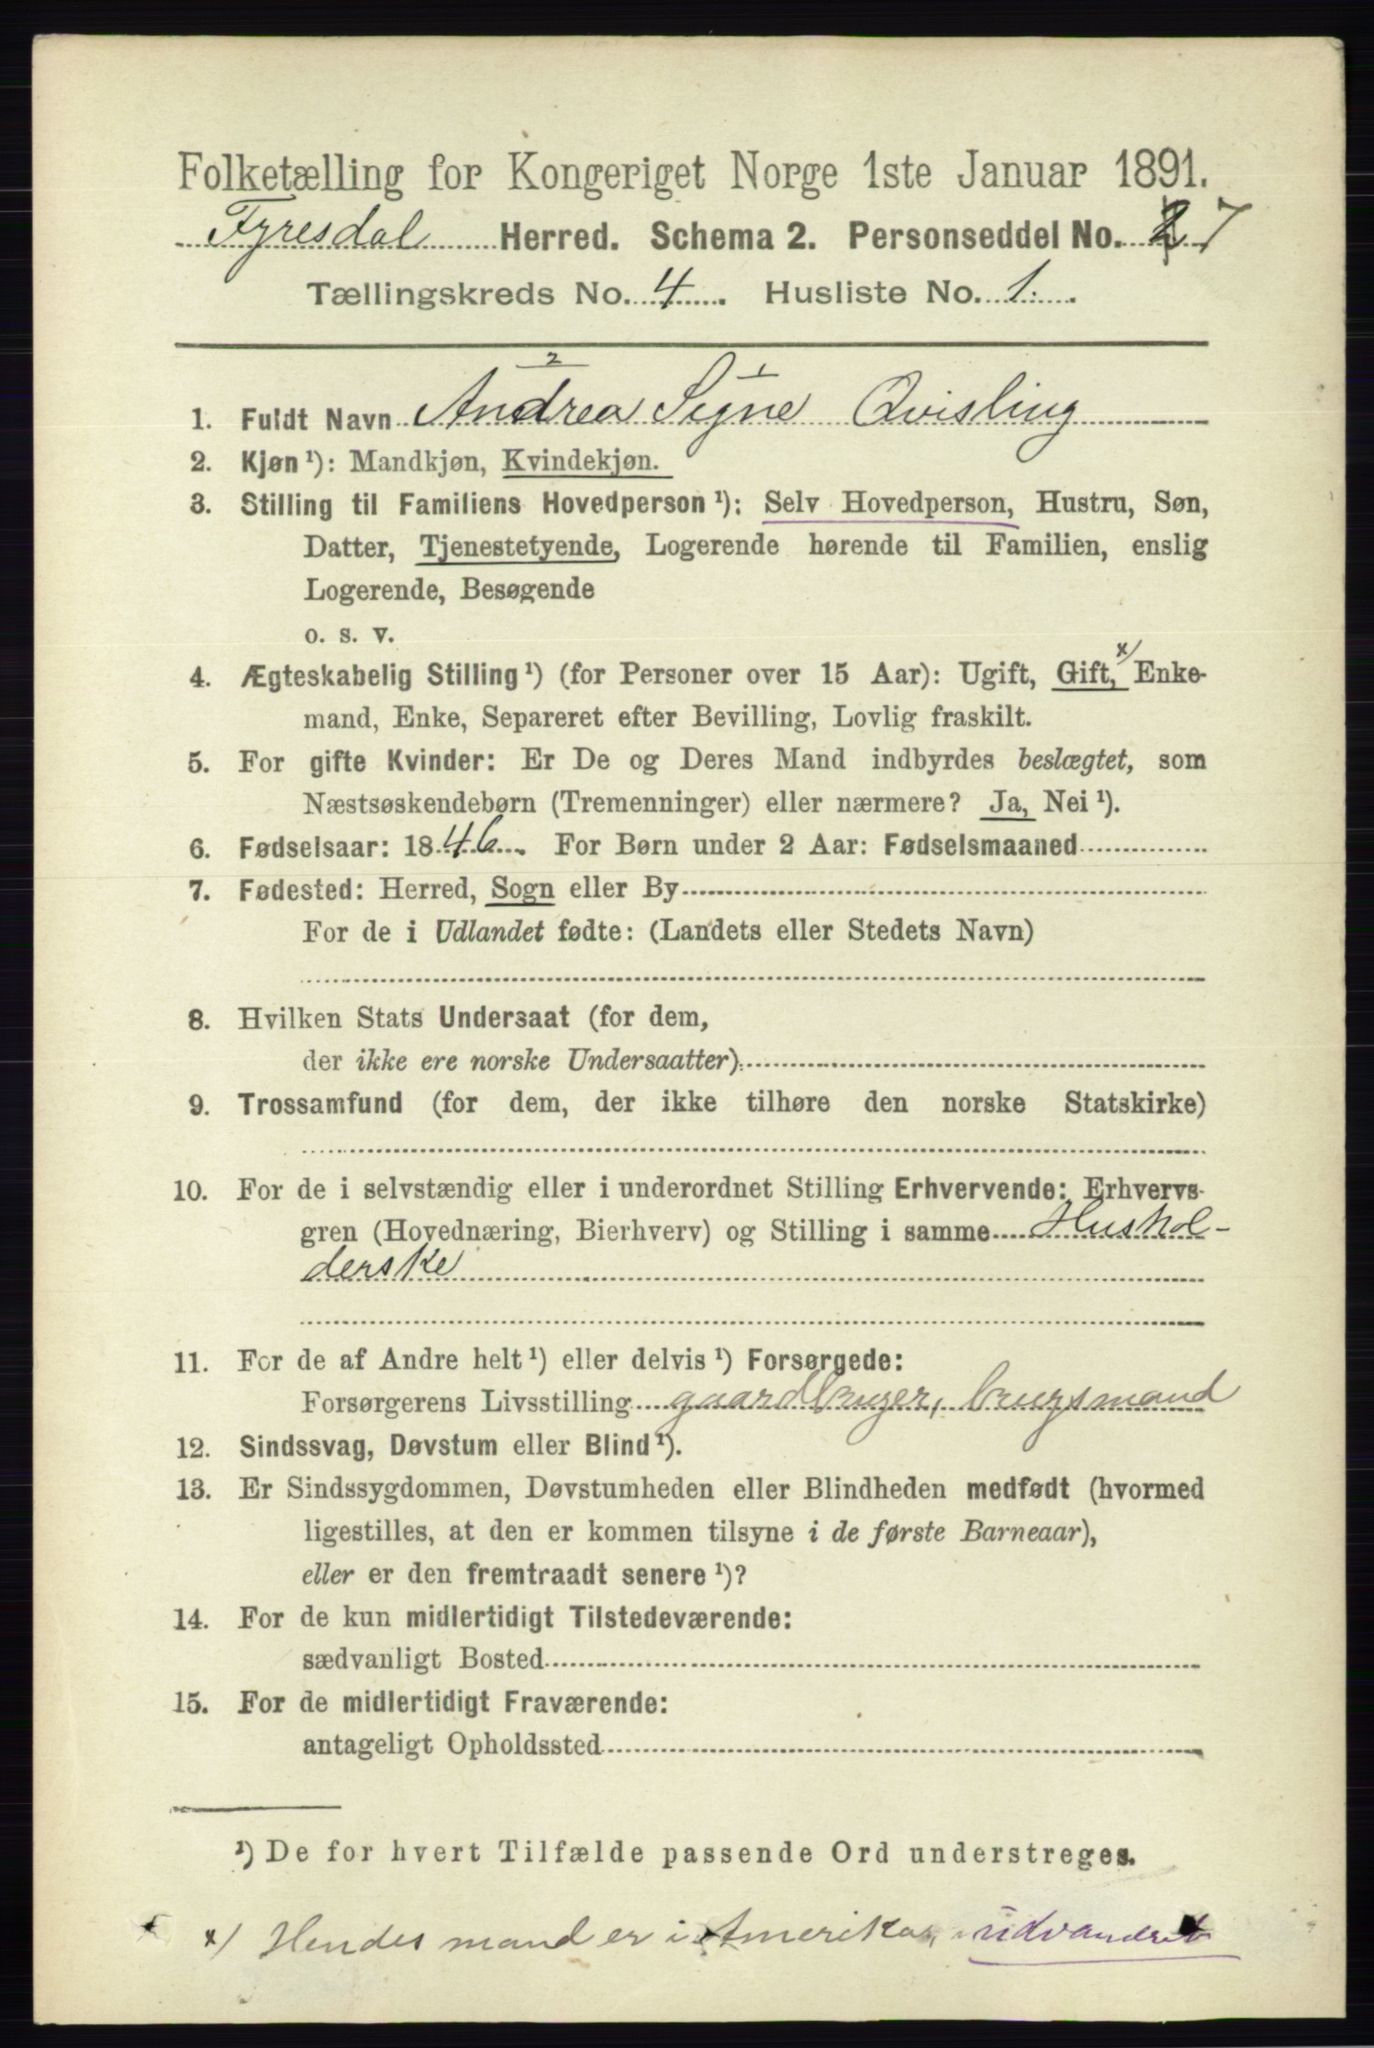 Folketælling for Kongeriget Norge 1ste Januar 1891.
Fyresdal Herred. Schema 2. Personseddel No. 7
Tællingskreds No. 4. Husliste No. 1.
2 1
1. Fuldt Navn Andrea Signe Qvisling
2. Kjøn ¹): Mandkjøn, Kvindekjøn.
3. Stilling til Familiens Hovedperson ¹): Selv Hovedperson, Hustru, Søn,
Datter, Tjenestetyende, Logerende hørende til Familien, enslig
Logerende, Besøgende
o. s. v.
4. Ægteskabelig Stilling ¹) (for Personer over 15 Aar): Ugift, Gift, x) Enke-
mand, Enke, Separeret efter Bevilling, Lovlig fraskilt.
5. For gifte Kvinder: Er De og Deres Mand indbyrdes beslægtet, som
Næstsøskendebørn (Tremenninger) eller nærmere? Ja, Nei ¹).
6. Fødselsaar: 1846. For Børn under 2 Aar: Fødselsmaaned
7. Fødested: Herred, Sogn eller By
For de i Udlandet fødte: (Landets eller Stedets Navn)
8. Hvilken Stats Undersaat (for dem,
der ikke ere norske Undersaatter)
9. Trossamfund (for dem, der ikke tilhøre den norske Statskirke)
10. For de i selvstændig eller i underordnet Stilling Erhvervende: Erhvervs-
gren (Hovednæring, Bierhverv) og Stilling i samme Hushol-
derske
11. For de af Andre helt ¹) eller delvis ¹) Forsørgede:
Forsørgerens Livsstilling gaardbruger, brugsmand
12. Sindssvag, Døvstum eller Blind ¹).
13. Er Sindssygdommen, Døvstumheden eller Blindheden medfødt (hvormed
ligestilles, at den er kommen tilsyne i de første Barneaar),
eller er den fremtraadt senere ¹)?
14. For de kun midlertidigt Tilstedeværende:
sædvanligt Bosted
15. For de midlertidigt Fraværende:
antageligt Opholdssted
¹) De for hvert Tilfælde passende Ord understreges.
x) Hendes mand er i Amerika, udvandret